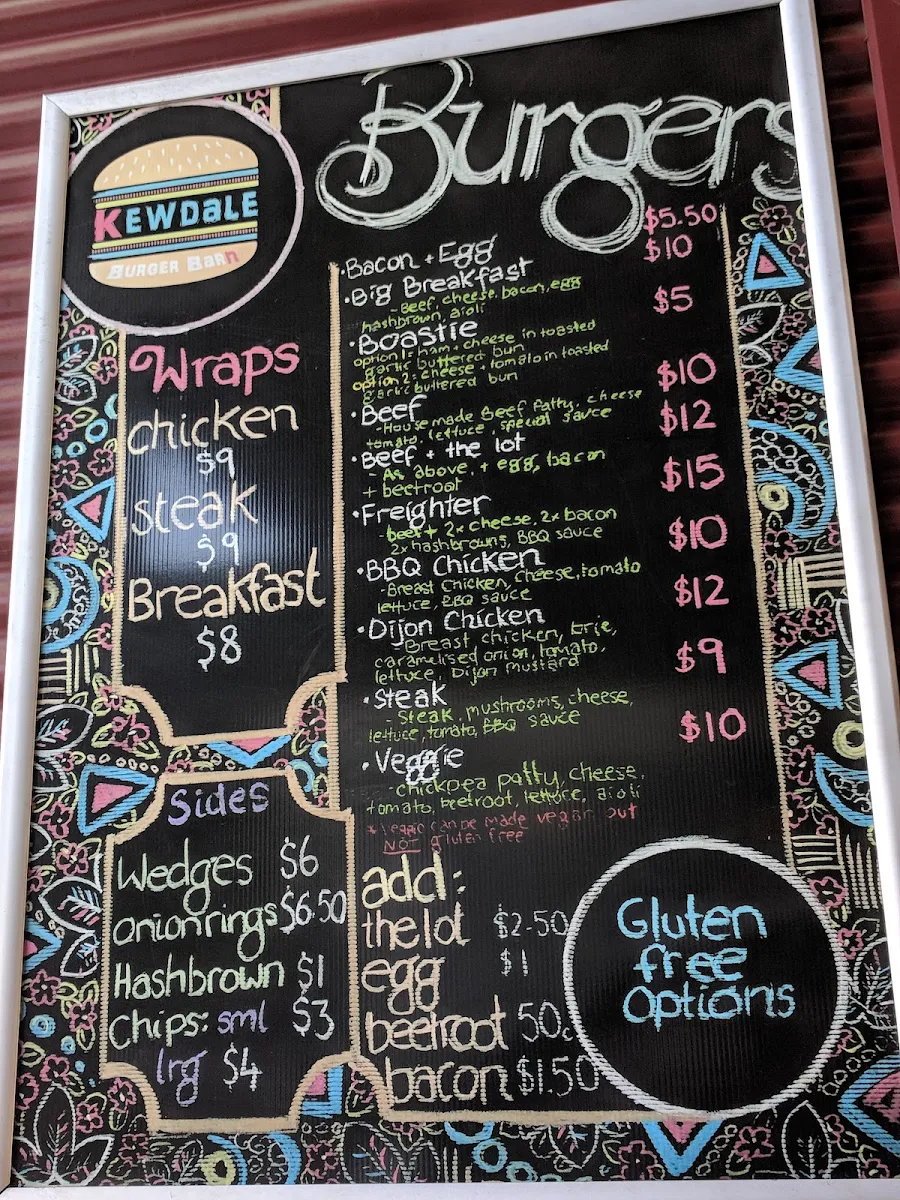 Burgers
KEWDALE
BURGER BARN
·Bacon + Egg $5.50
·Big Breakfast $10
-Beef, cheese, bacon, egg
hashbrown, aioli
·Boastie $5
option 1: ham + cheese in toasted
garlic buttered bun
option 2: cheese + tomato in toasted
garlic buttered bun
·Beef $10
-House made Beef Patty, cheese
tomato, lettuce, special sauce
·Beef + the lot $12
- As above, + egg, bacon
+ beetroot
·Freighter $15
-beef + 2x cheese, 2x bacon
2x hashbrowns, BBQ sauce
·BBQ Chicken $10
-Breast Chicken, Cheese, tomato
lettuce, BBQ sauce
·Dijon Chicken $12
-Breast chicken, brie,
caramelised onion, tomato,
lettuce, Dijon mustard
·Steak $9
-Steak, mushrooms, cheese,
lettuce, tomato, BBQ sauce
·Veggie $10
-chickpea patty, cheese,
tomato, beetroot, lettuce, aioli
*Veggie can be made vegan but
NOT gluten free
Wraps
chicken
$9
steak
$9
Breakfast
$8
Sides
Wedges $6
onion rings $6.50
Hashbrown $1
Chips: sml $3
lrg $4
add:
the lot $2.50
egg $1
beetroot 50c
bacon $1.50
Gluten
free
options